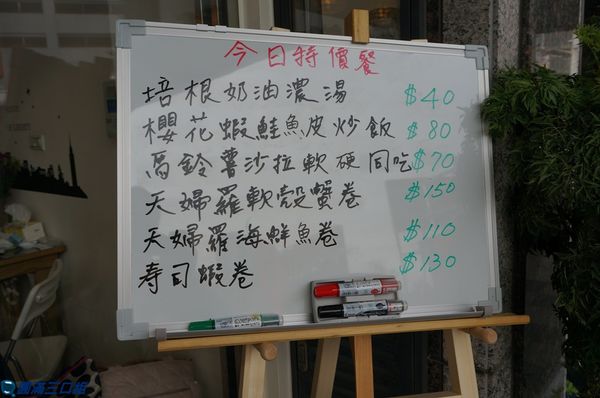 今日特價餐
培根奶油濃湯 $40
櫻花蝦鮭魚皮炒飯 $80
馬鈴薯沙拉軟硬同吃 $70
天婦羅軟殼蟹卷 $150
天婦羅海鮮魚卷 $110
寿司蝦卷 $130